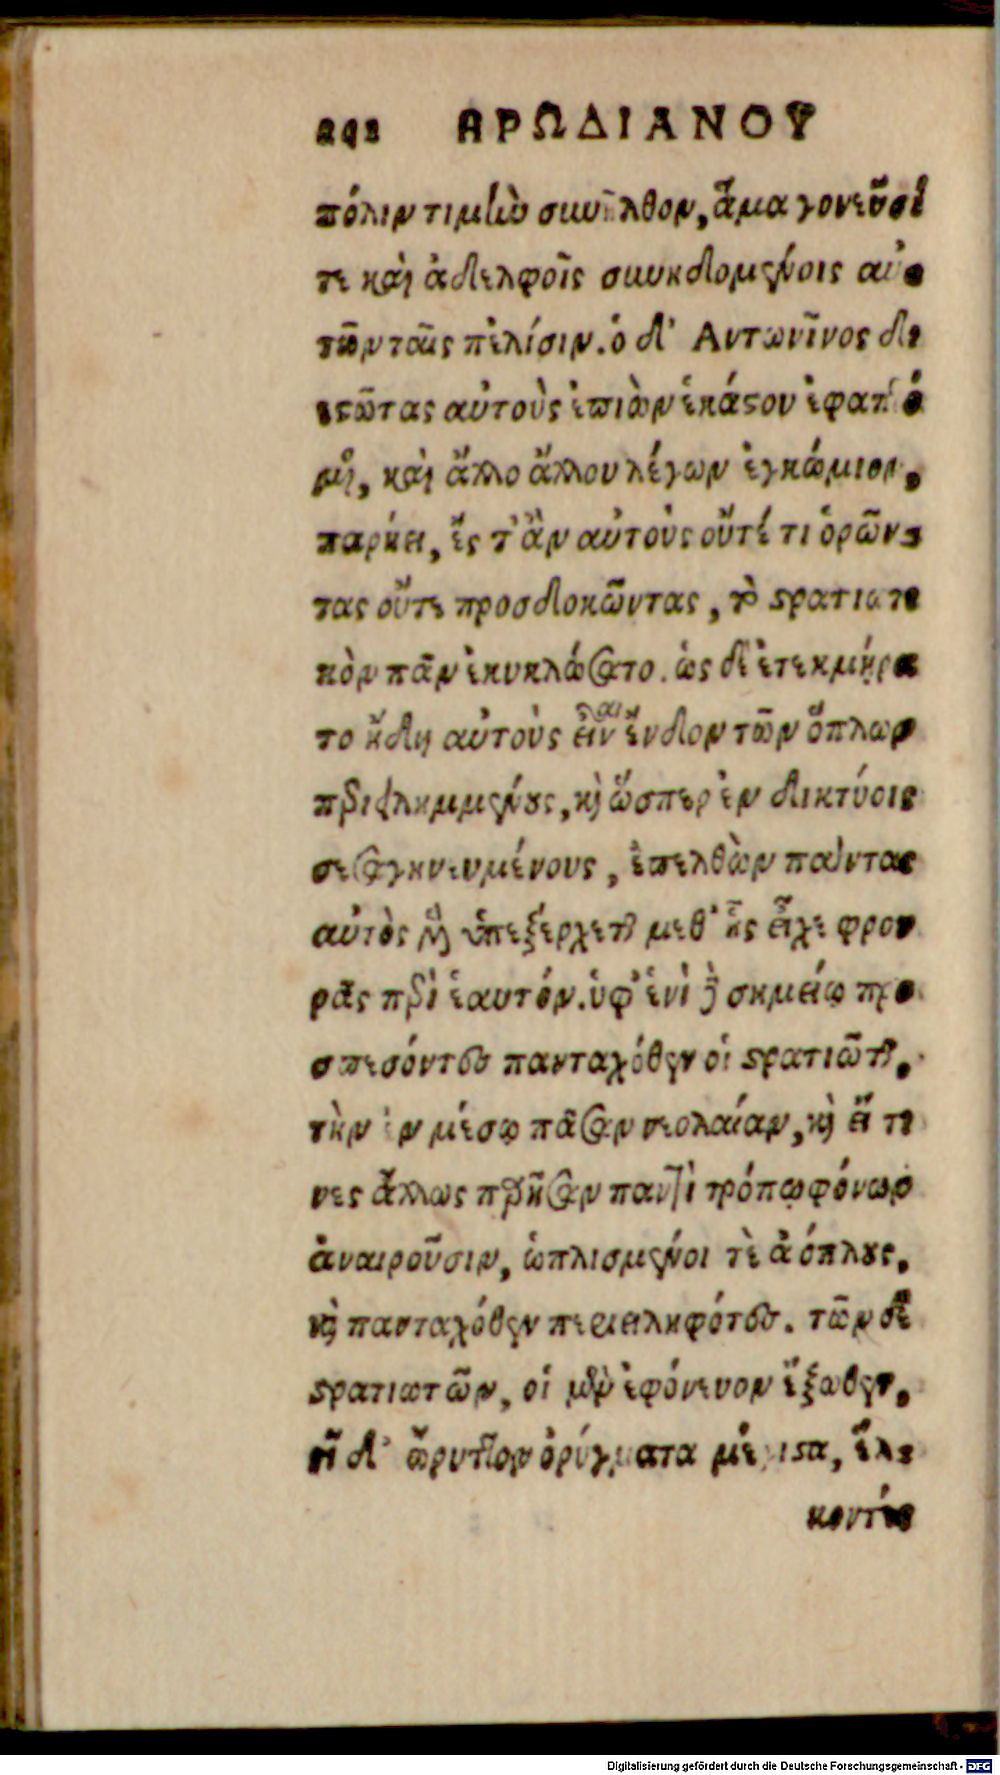 242 ΗΡΩΔΙΑΝΟΥ
πόλιν τιμὴν συνῆλθον, ἅμα γονεῦσί
τε καὶ ἀδελφοῖς συνηδομένοις αὐ-
τῶν ταῖς πελίσιν. ὁ δ' Αντωνῖνος διε
εστῶτας αὐτοὺς ἐπιὼν ἑκάστου ἐφαπτό
μεν, καὶ ἄλλο ἄλλου λέγων ἐγκώμιον,
παρῄει, ἔς τ' ἂν αὐτοὺς οὔτέ τι ὁρῶν-
τας οὔτε προσδοκῶντας, τὸ στρατιωτι
κὸν πᾶν ἐκυκλώσατο. ὡς δὲ ἐτεκμήρα
το ἤδη αὐτοὺς εἶναι ἔνδον τῶν ὅπλων
περιειλημμένους, καὶ ὥσπερ ἐν δικτύοις
σεσαγηνευμένους, ἐπελθὼν πάντας
αὐτὸς μὲν ὑπεξέρχεται μεθ' ἧς εἶχε φρου
ρᾶς περὶ ἑαυτόν. ὑφ' ἑνὶ δὲ σημείῳ προ
σπεσόντες πανταχόθεν οἱ στρατιῶται,
τὴν ἐν μέσῳ πᾶσαν νεολαίαν, καὶ εἴ τι
νες ἄλλως παρῆσαν παντὶ τρόπῳ φόνων
ἀναιροῦσιν, ὡπλισμένοι τὲ ἀόπλους,
καὶ πανταχόθεν περιειληφότες. τῶν δὲ
στρατιωτῶν, οἱ μὲν ἐφόνευον ἔξωθεν,
οἳ δ' ὤρυττον ὀρύγματα μέγιστα, ἕλ-
κοντές
Digitalisierung gefördert durch die Deutsche Forschungsgemeinschaft - DFG